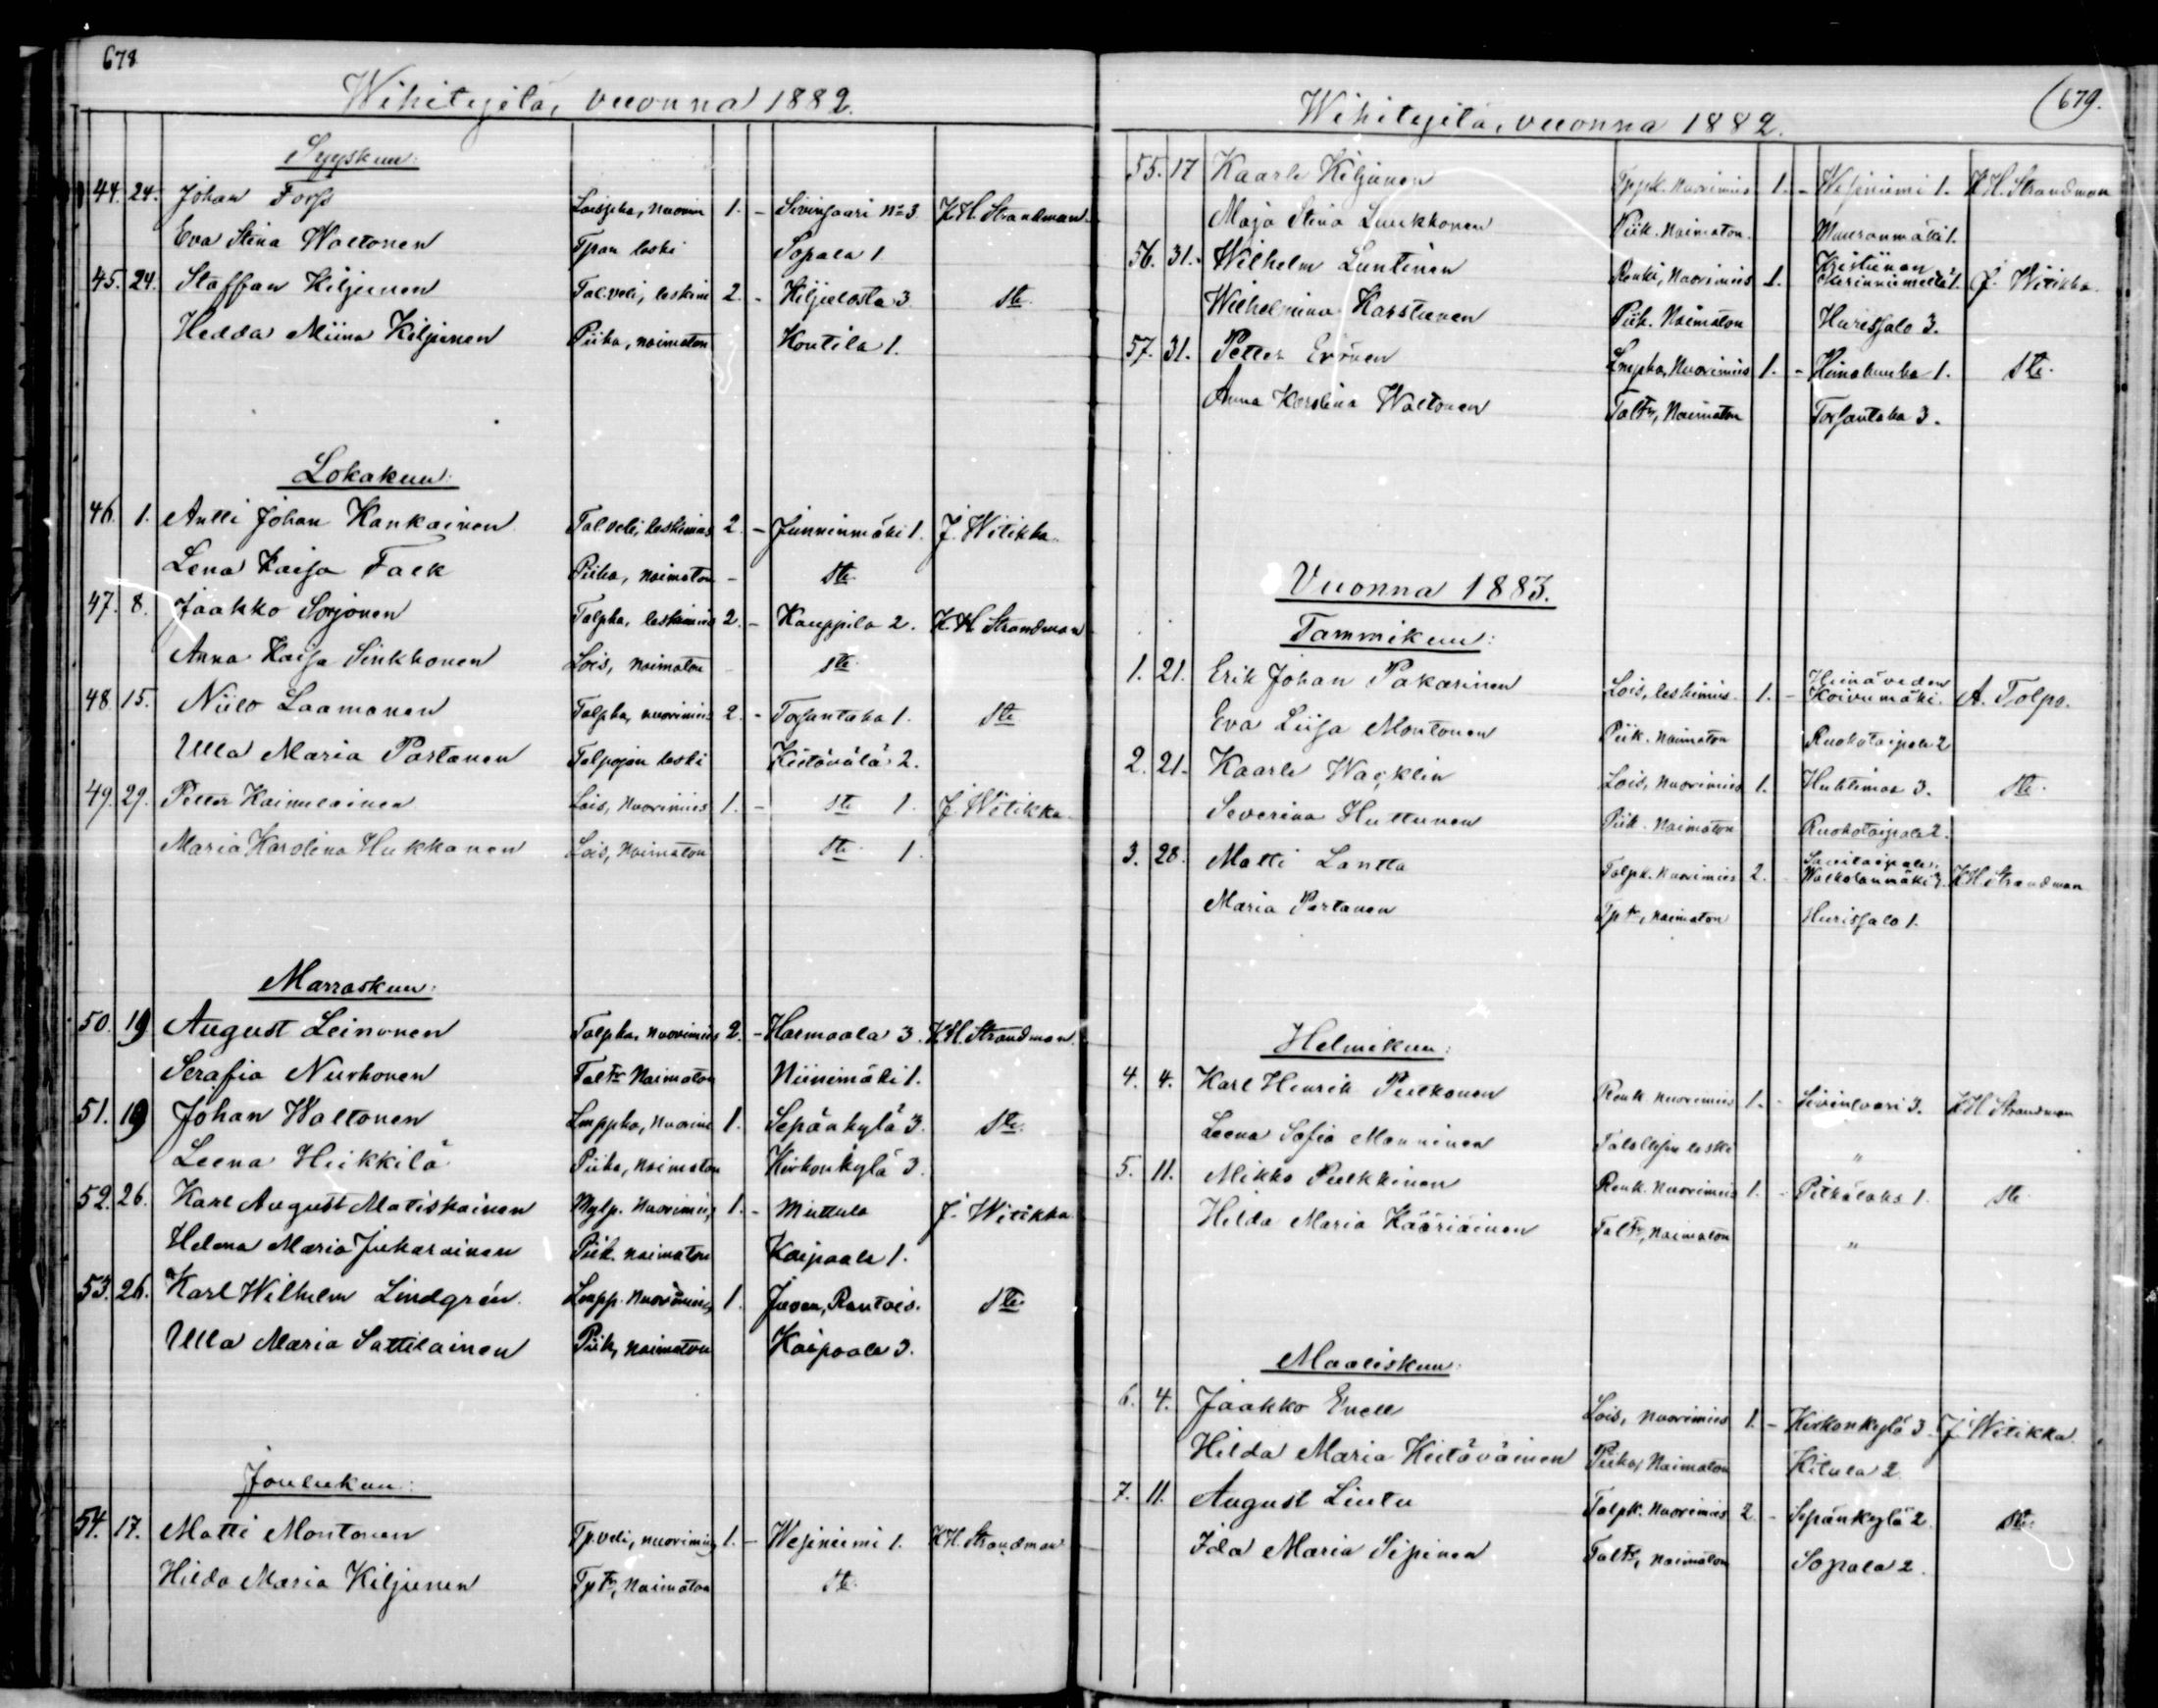 678
Wihitejitä, vuonna 1882.
Syyskuu:
44. 24. Johan Forss Loispka, Nuorim 1. - Sivinsaari No 3. K.H. Strandman.
Eva Stina Waltonen Tpan leski Sopala 1
45. 24. Staffan Kiljunen Tal.veli, leskim 2. - Kiljulosta 3 Ste.
Hedda Miina Kiljunen Piika, naimaton Kontila 1.
Lokakuu:
46. 1. Antti Johan Kankainen Tal veli, leskimies 2. - Junninmäki 1. J. Witikka.
Lena Kaisa Falk Piika, naimaton - Ste.
47. 8. Jaakko Sorjonen Talpka, leskimies 2. - Kauppila 2. K.H. Strandman
Anna Kaisa Sinkkonen Lois, naimaton - Ste.
48 15. Niilo Laamanen Talpka, nuorimies 2. - Torsantaka 1. Ste
Ulla Maria Partanen Talpojan leski Kiitävälä 2.
49. 29. Petter Kainulainen Lois, Nuorimies 1. - Ste 1. J. Witikka.
Maria Karolina Hukkanen Lois, Naimaton Ste 1.
Marraskuu:
50. 19 August Leinonen Talpka, nuorimies 2. - Harmaala 3. K.H. Strandman.
Serafia Nurhonen Taltr Naimaton Niinimäki 1.
51. 19 Johan Waltonen Lmppka, Nuorimi 1. Sepänkylä 3. Ste.
Leena Heikkilä Piika, Naimaton Kirkonkylä 3.
52. 26. Karl August Matiskainen Mylp. Nuorimies 1. - Muttula J. Witikka.
Helena Maria Jukarainen Piik. naimaton Kaipaala 1.
53. 26. Karl Wilhelm Lindgrén. Lmpp. Nuorimies 1. Juvan, Rantois. Ste
Ulla Maria Sattilainen Piik, naimaton Kaipaala 3.
Joulukuu:
54. 17. Matti Montonen Tp.veli, nuorimies 1. - Wesiniemi 1. K.H. Strandman
Hilda Maria Kiljunen Tptr, Naimaton Ste.
679.
Wihitejitä, vuonna 1882.
55. 17 Kaarle Kiljunen Tppk. Nuorimies 1. - Wesiniemi 1. K.H. Strandman
Maja Stina Luukkonen Piik. Naimaton. Muuranmäki 1.
56. 31. Wilhelm Luntinen Renki, Nuorimies 1. Kristiinan J. Witikka.
Wilhelmina Karstunen Piik. Naimaton Hurissalo 3.
57. 31. Petter Eronen Lmpka, Nuorimies 1. - Himahuuha 1. Ste.
Anna Karolina Waltonen Taltr, Naimaton Torsantaka 3.
Vuonna 1883.
Tammikuu:
1. 21. Erik Johan Pakarinen Lois, leskimies. 1. - Heinäveden Koivumäki. A. Tolpo.
Eva Liisa Montonen Piik. naimaton Ruokotaipale 2
2. 21. Kaarle Wacklin Lois, Nuorimies 1. Huhtimaa 3. Ste.
Severina Huttunen Piik. Naimaton Ruokotaipale 2.
3. 28. Matti Lantta Talpk. Nuorimies 2. Savitaipale. Walkolanmäki 3. K.H. Strandman
Maria Partanen Tptr, naimaton Hurissalo 1.
Helmikuu:
4. 4. Karl Henrik Pulkonen Renk nuorimies 1. - Sivinsaari 3. K.H. Strandman
Leena Sofia Manninen leski "
5. 11. Mikko Pulkkinen Renk. Nuorimies 1. - Pitkälaks 1. Ste
Hilda Maria Kääriäinen Taltr, Naimaton "
Maaliskuu:
6. 4. Jaakko Enell Lois, nuorimies 1. - Kirkonkylä 3. J. Witikka.
Hilda Maria Kiitäväinen Piika, Naimaton Kitula 2.
7. 11. August Lintu Talpk. Nuorimies 2 - Sepänkylä 2. Ste.
Ida Maria Sipinen Taltr, Naimaton Sopala 2.